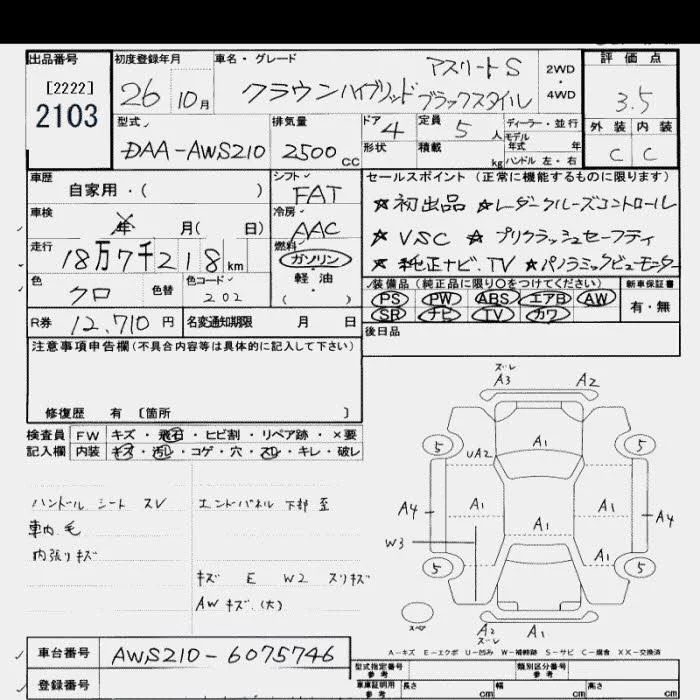 出品番号
[2222]
2103
初度登録年月
26 10月
車名・グレード
アスリートS
クラウンハイブリッド ブラックスタイル
2WD
・
4WD
評価点
3.5
外装 内装
C C
型式
DAA-AWS210
排気量
2500cc
ドア 4
形状
定員 5人
積載 kg
ディーラー・並行
モデル
年式 年
ハンドル 左・右
車歴
自家用・( )
シフト
FAT
車検
年 月( 日)
冷房
AAC
走行
18万7千218km
燃料
ガソリン
軽・油
( )
色
クロ
色替
色コード
202
R券 12,710円
名変通知期限 月 日
セールスポイント(正常に機能するものに限ります)
☆初出品 ☆レーダークルーズコントロール
☆VSC ☆プリクラッシュセーフティ
☆純正ナビ.TV ☆パノラミックビューモニター
装備品(純正品に限り○をつけてください)
PS PW ABS エアB AW
SR ナビ TV カワ
新車保証書
有・無
後日品
注意事項申告欄(不具合内容等は具体的に記入して下さい)
修復歴 有〔箇所 〕
検査員記入欄
FW キズ・飛石・ヒビ割・リペア跡・×要
内装 キズ・汚レ・コゲ・穴・スレ・キレ・破レ
ハンドル シート スレ
車内 毛
内張りキズ
エンドパネル 下部 歪
キズ E W2 スリキズ
AWキズ(大)
ズレ
A3 A2
5 5
A1
UA2
A4 A1 A1 A4
A1
W3
A1
5 5
スペア
A2
ズレ
A1
A-キズ E-エクボ U-凹み W-補修跡 S-サビ C-腐食 XX-交換済
車台番号
AWS210-6075746
登録番号
型式指定番号
参考
類別区分番号
参考
車庫証明用
参考
長さ cm 幅 cm 高さ cm